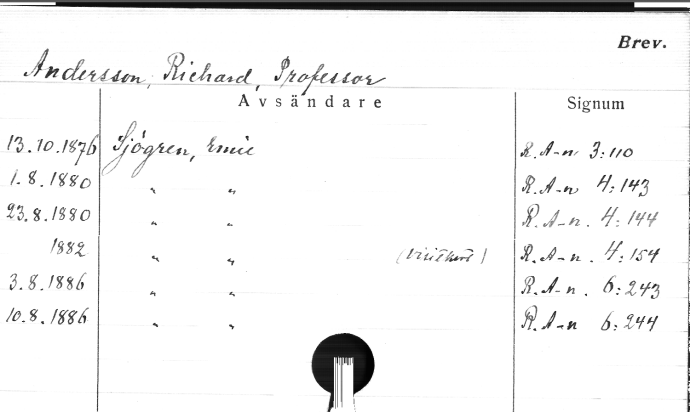 Brev.
Andersson, Richard, Professor
Avsändare Signum
13.10.1876 Sjögren, Emil R. A-n 3:110
1.8.1880 " " R. A-n 4:143
23.8.1880 " " R. A-n. 4:144
1882 " " (visitkort) R. A-n. 4:154
3.8.1886 " " R. A-n. 6:243
10.8.1886 " " R. A-n 6:244